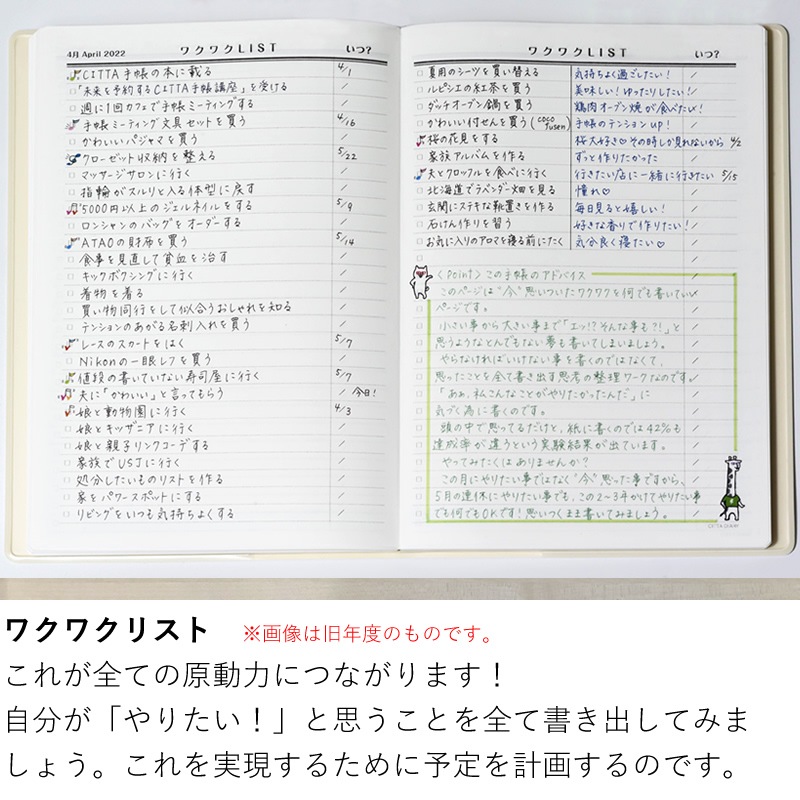 4月 April 2022 ワクワクLIST いつ?
CITTA手帳の本に載る 4/1
「未来を予約するCITTA手帳講座」を受ける /
週に1回カフェで手帳ミーティングする /
手帳ミーティング文具セットを買う 4/16
かわいいパジャマを買う /
クローゼット収納を整える 5/22
マッサージサロンに行く /
指輪がスルリと入る体型に戻す /
5000円以上のジェルネイルをする 5/9
ロンシャンのバッグをオーダーする /
ATAOの財布を買う 5/14
食事を見直して貧血を治す /
キックボクシングに行く /
着物を着る /
買い物同行をして似合うおしゃれを知る /
テンションのあがる名刺入れを買う /
レースのスカートをはく 5/7
Nikonの一眼レフを買う /
値段の書いていない寿司屋に行く 5/7
夫に「かわいい」と言ってもらう / 今日!
娘と動物園に行く 4/3
娘とキッザニアに行く /
娘と親子リンクコーデする /
家族でUSJに行く /
処分したいものリストを作る /
家をパワースポットにする /
リビングをいつも気持ちよくする /
ワクワクLIST いつ?
夏用のシーツを買い替える 気持ちよく過ごしたい! /
ルピシエの紅茶を買う 美味しい!ゆったりしたい! /
ダッチオーブン鍋を買う 鶏肉オーブン焼が食べたい! /
かわいい付せんを買う(coco fusen) 手帳のテンションup! /
桜の花見をする 桜大好き♡その時しか見れないから 4/2
家族アルバムを作る ずっと作りたかった /
夫とクロッフルを食べに行く 行きたい店に一緒に行きたい 5/15
北海道でラベンダー畑を見る 憧れ♡ /
玄関にステキな靴置きを作る 毎日見ると嬉しい! /
石けん作りを習う 好きな香りで作りたい! /
お気に入りのアロマを寝る前にたく 気分良く寝たい♡ /
<Point>この手帳のアドバイス
このページは"今"思いついたワクワクを何でも書いていい
ページです。
小さい事から大きい事まで「エッ!?そんな事も?!」と
思うようなとんでもない夢も書いてしまいましょう。
やらなければいけない事を書くのではなくて、
思ったことを全て書き出す思考の整理ワークなのです。
「あぁ、私こんなことがやりたかったんだ」に
気づく為に書くのです。
頭の中で思ってるだけと、紙に書くのでは42%も
達成率が違うという実験結果が出ています。
やってみたくはありませんか?
この月にやりたい事ではなく"今"思った事ですから、
5月の連休にやりたい事でも、この2〜3年かけてやりたい事
でも何でもOKです!思いつくまま書いてみましょう。
CITTA DIARY
ワクワクリスト ※画像は旧年度のものです。
これが全ての原動力につながります!
自分が「やりたい!」と思うことを全て書き出してみま
しょう。これを実現するために予定を計画するのです。